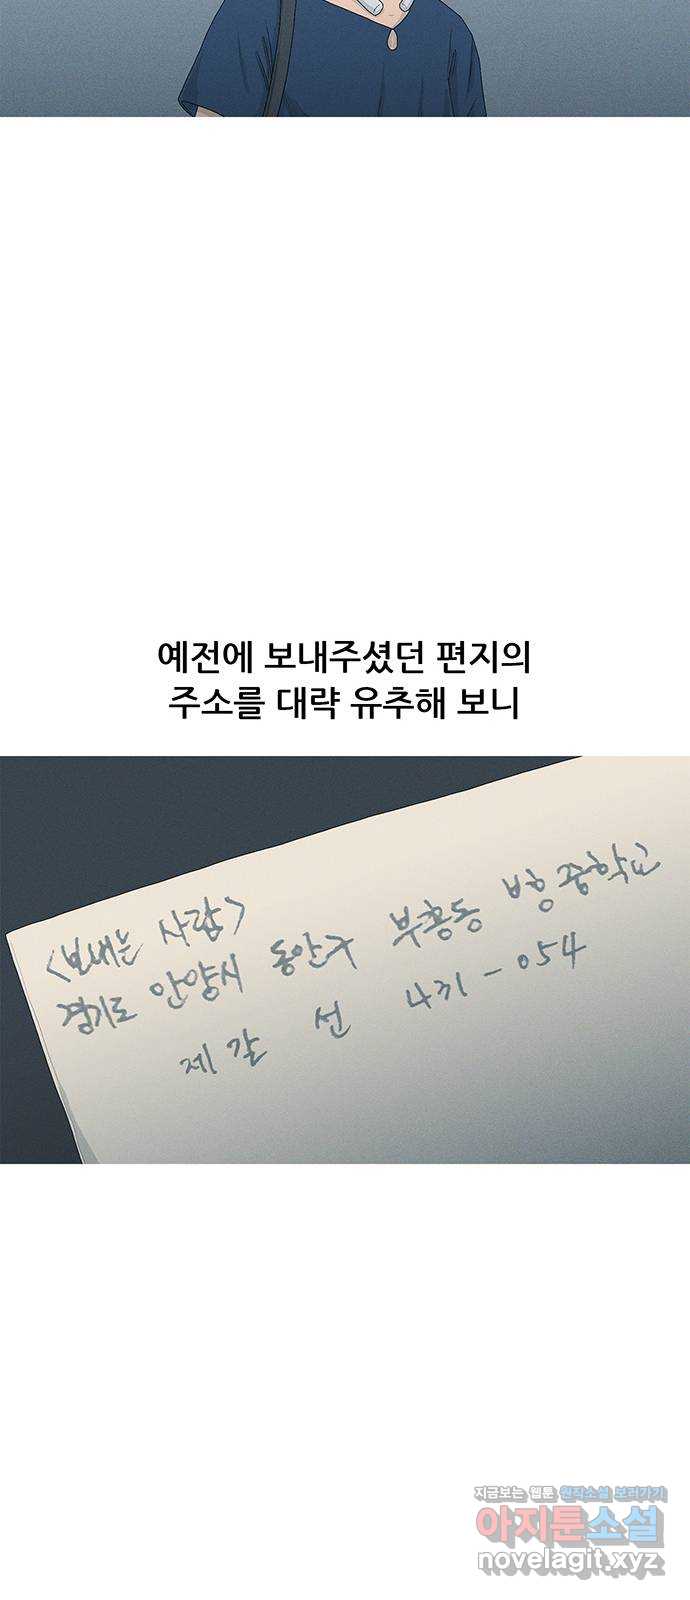 예전에 보내주셨던 편지의
주소를 대략 유추해 보니
<보내는 사람>
경기도 안양시 동안구 부흥동 범흥중학교
제갈 선 431-054
지금보는 웹툰 원작소설 보러가기
아지툰소설
novelagit.xyz